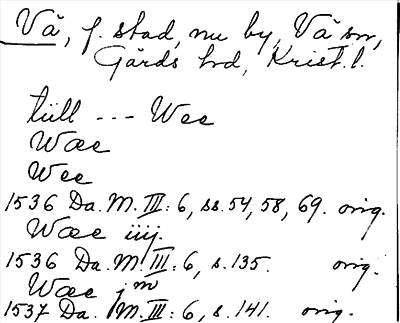 Vä, f. stad, nu by, Vä sn,
Gärds hd, Krist. l.
tüll --- Wee
Wæe
Wee
1536 Da. M. III: 6, ss. 54, 58, 69. orig.
Wæe iiij.
1536 Da. M. III: 6, s. 135. orig.
Wæe jm
1537 Da. M. III: 6, s. 141. orig.